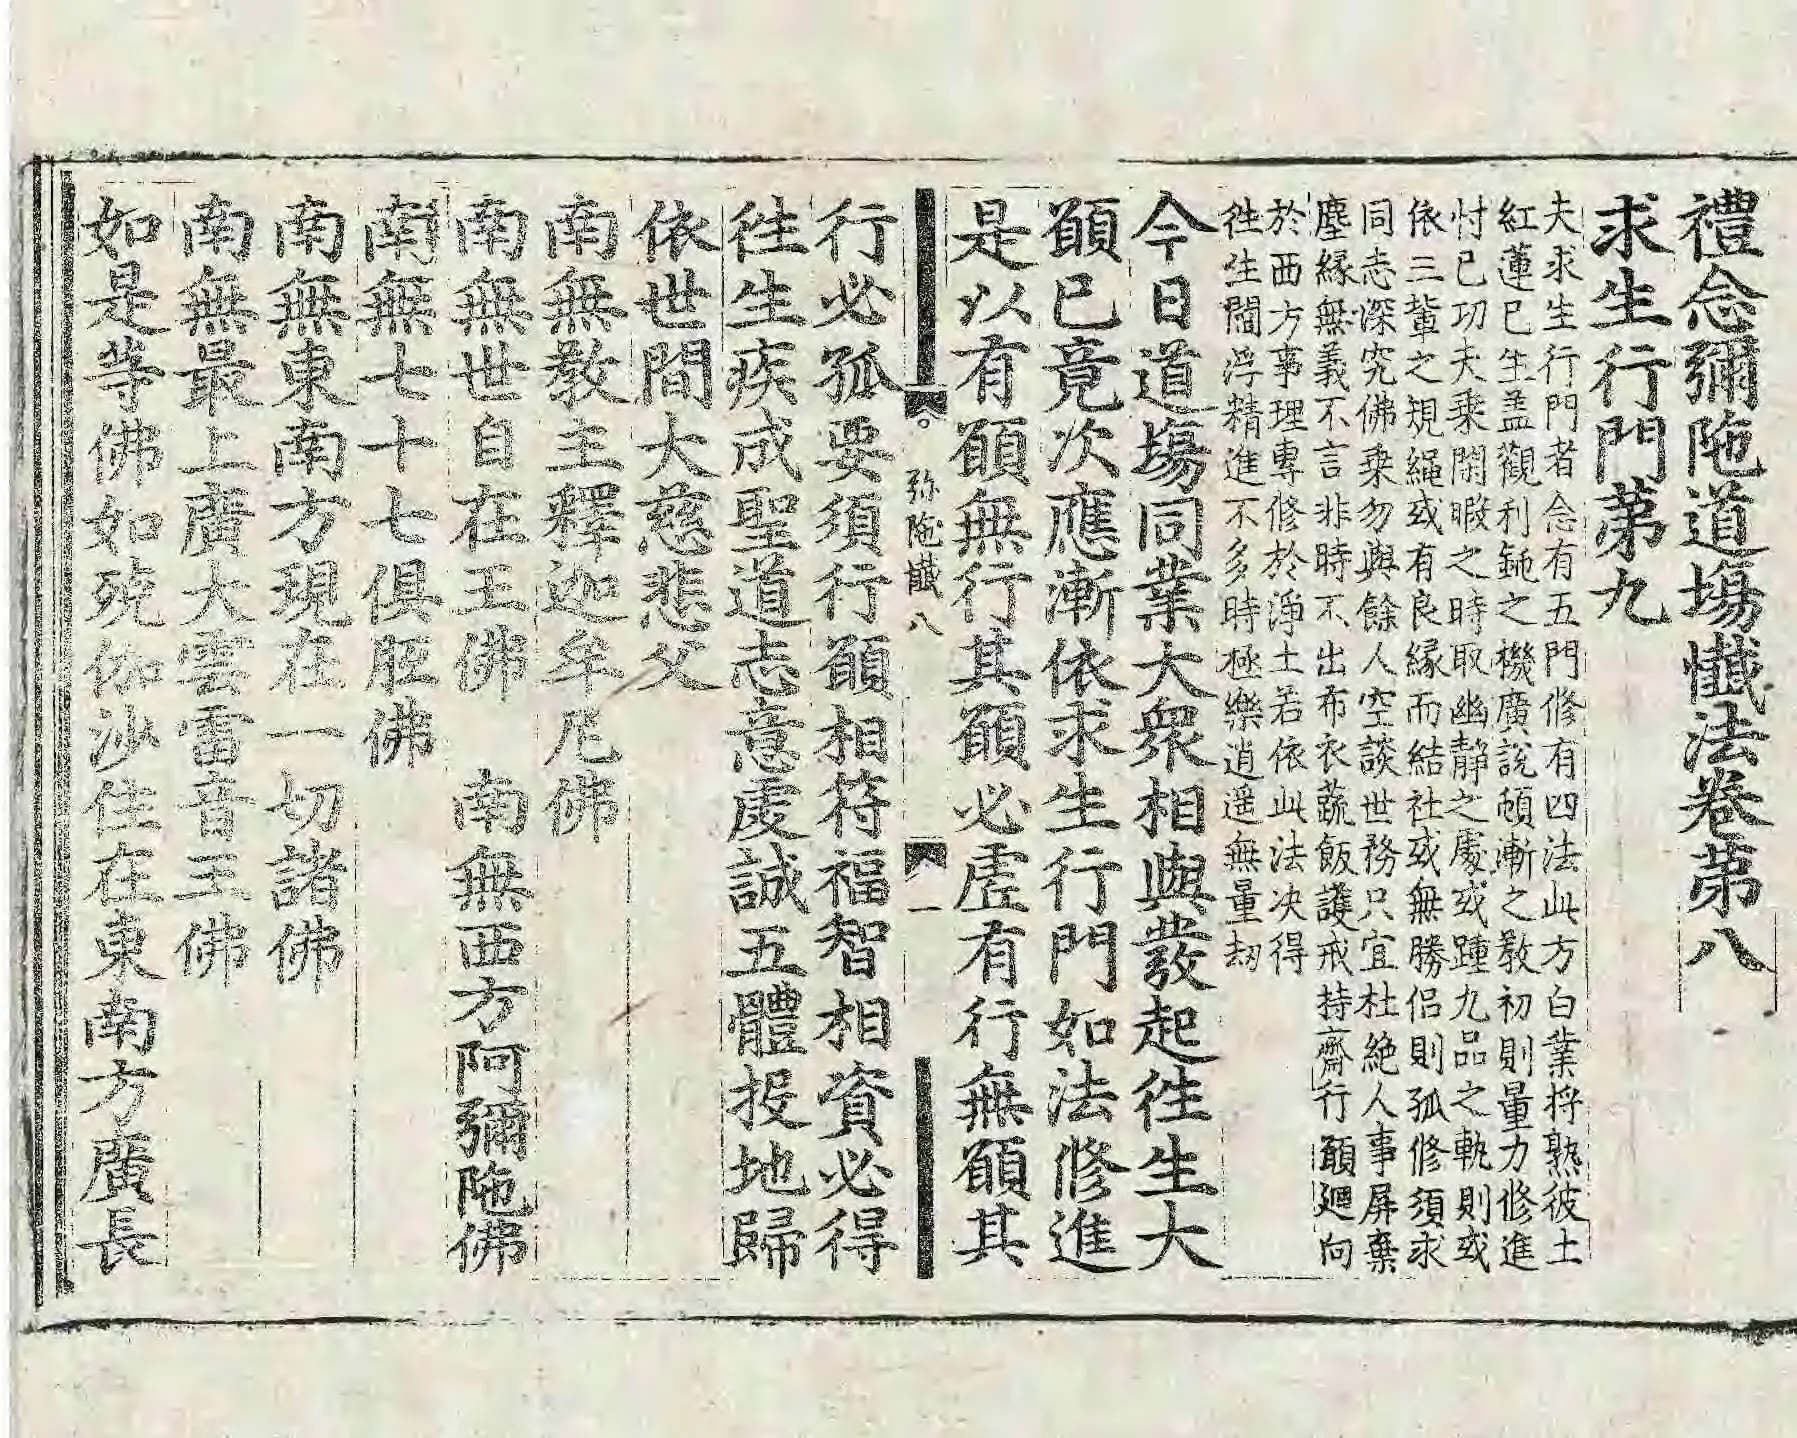 禮念彌陁道塲懺法卷第八
求生行門第九
夫求生行門者念有五門修有四法此方白業将熟彼土
紅蓮已生盖觀利鈍之機廣說頓漸之教初則量力修進
忖已功夫乗閑暇之時取幽靜之處或踵九品之軌則或
依三輩之規繩或有良縁而結社或無勝侣則孤修須求
同志深究佛乗勿與餘人空談世務只宜杜絶人事屏棄
塵縁無義不言非時不出布衣蔬飯護戒持齋行願廻向
於西方事理專修於淨土若依此法决得
徃生閻浮精進不多時極樂逍遥無量刼
今日道塲同業大衆相與發起徃生大
願已竟次應漸依求生行門如法修進
是以有願無行其願必虗有行無願其
弥陁懺八 一
行必孤要須行願相符福智相資必得
徃生疾成聖道志意虔誠五體投地歸
依世間大慈悲父
南無教主釋迦牟尼佛
南無世自在王佛 南無西方阿彌陁佛
南無七十七俱胝佛
南無東南方現在一切諸佛
南無最上廣大雲雷音王佛
如是等佛如殑伽沙住在東南方廣長